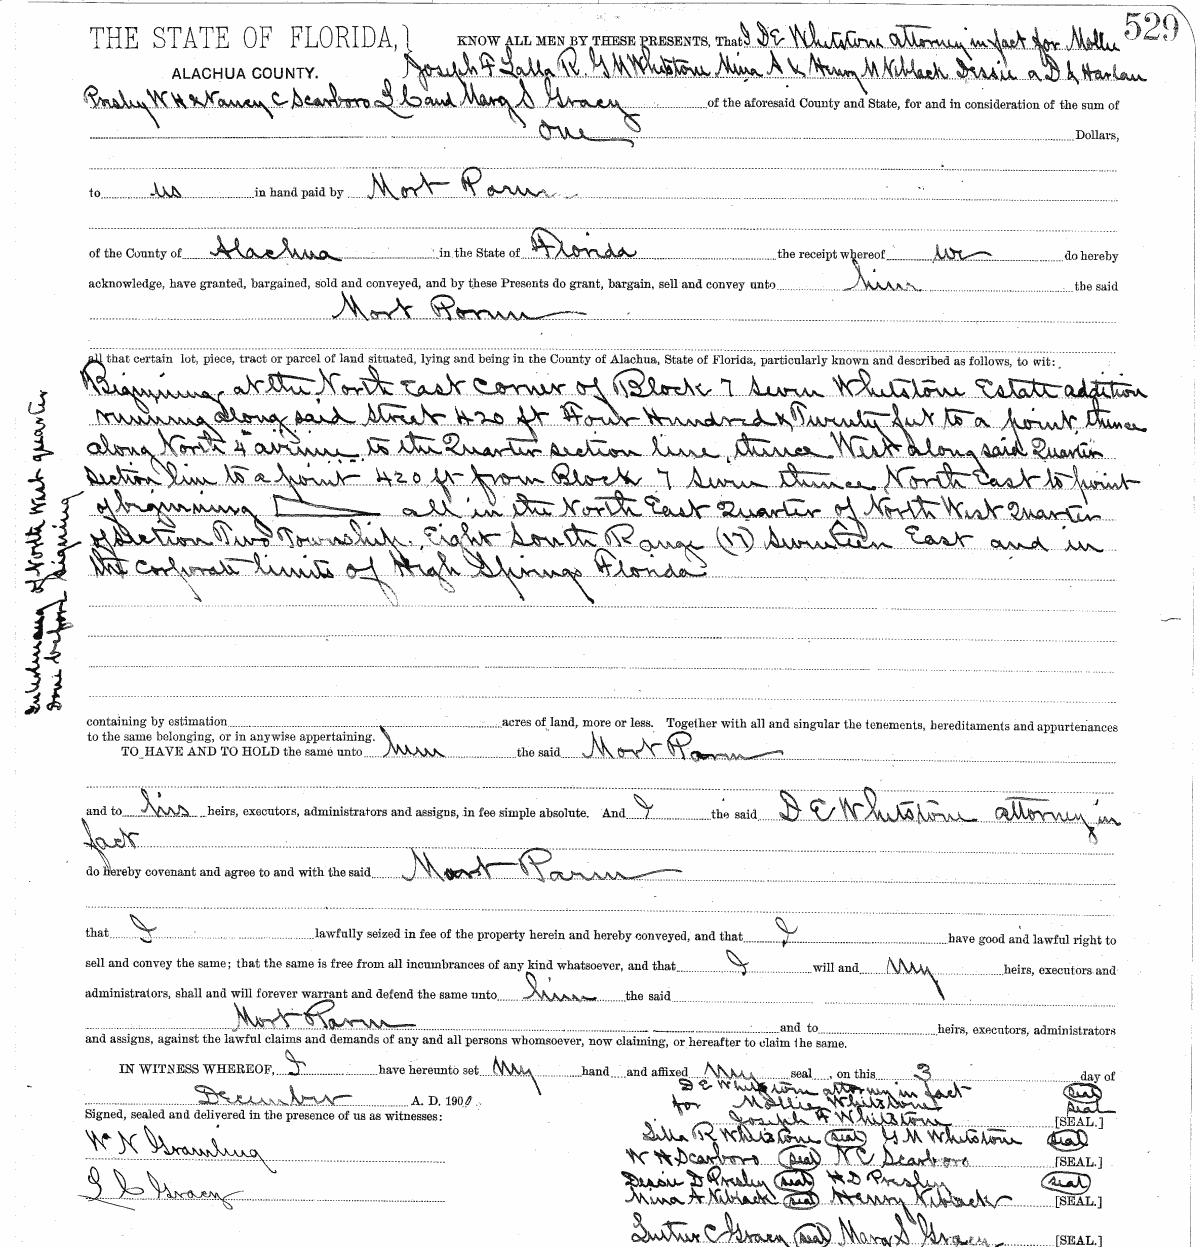 529
THE STATE OF FLORIDA,} KNOW ALL MEN BY THESE PRESENTS, That I D E Whetstone attorney in fact for Mollie
ALACHUA COUNTY. Joseph F Lalla R. G M Whetstone Mina A & Henry M Niblack Dessie a D & Harlan
Presley W H & Nancy C Scarboro L C and Mary S Gracy of the aforesaid County and State, for and in consideration of the sum of
one Dollars,
to us in hand paid by Mort Parm
of the County of Alachua in the State of Florida the receipt whereof we do hereby
acknowledge, have granted, bargained, sold and conveyed, and by these Presents do grant, bargain, sell and convey unto him the said
Mort Parm
all that certain lot, piece, tract or parcel of land situated, lying and being in the County of Alachua, State of Florida, particularly known and described as follows, to wit:
Biginning at the North East corner of Block 7 Seven Whetstone Estate addition
running along said Street 420 ft Four Hundred & Twenty feet to a point, thence
along North 4" avenue to the Quarter section line, thence West along said Quarter
section line to a point 420 ft from Block 7 Seven thence North East to point
of biginning all in the North East Quarter of North West Quarter
of Section Two Township Eight South Range (17) Seventeen East and in
the corporate limits of High Springs Florida
of North West quarter
done before signing
containing by estimation acres of land, more or less. Together with all and singular the tenements, hereditaments and appurtenances
to the same belonging, or in anywise appertaining.
TO HAVE AND TO HOLD the same unto him the said Mort Parm
and to his heirs, executors, administrators and assigns, in fee simple absolute. And I the said D E Whetstone attorney in
fact
do hereby covenant and agree to and with the said Mort Parm
that I lawfully seized in fee of the property herein and hereby conveyed, and that I have good and lawful right to
sell and convey the same; that the same is free from all incumbrances of any kind whatsoever, and that I will and My heirs, executors and
administrators, shall and will forever warrant and defend the same unto him the said
Mort Parm and to heirs, executors, administrators
and assigns, against the lawful claims and demands of any and all persons whomsoever, now claiming, or hereafter to claim the same.
IN WITNESS WHEREOF, I have hereunto set My hand and affixed My seal , on this 3 day of
December A. D. 190
D E Whetstone attorney in fact seal
for Mollie Whetstone seal
Signed, sealed and delivered in the presence of us as witnesses:
Joseph F Whetstone [SEAL.]
W N Gramling
Lilla R Whetstone seal G M Whetstone seal
W H Scarboro seal N C Scarboro [SEAL.]
L C Gracy
Dessie D Presley seal H D Presley seal
Mina A Niblack seal Henry Niblack [SEAL.]
Luther C Gracy seal Mary S Gracy [SEAL.]